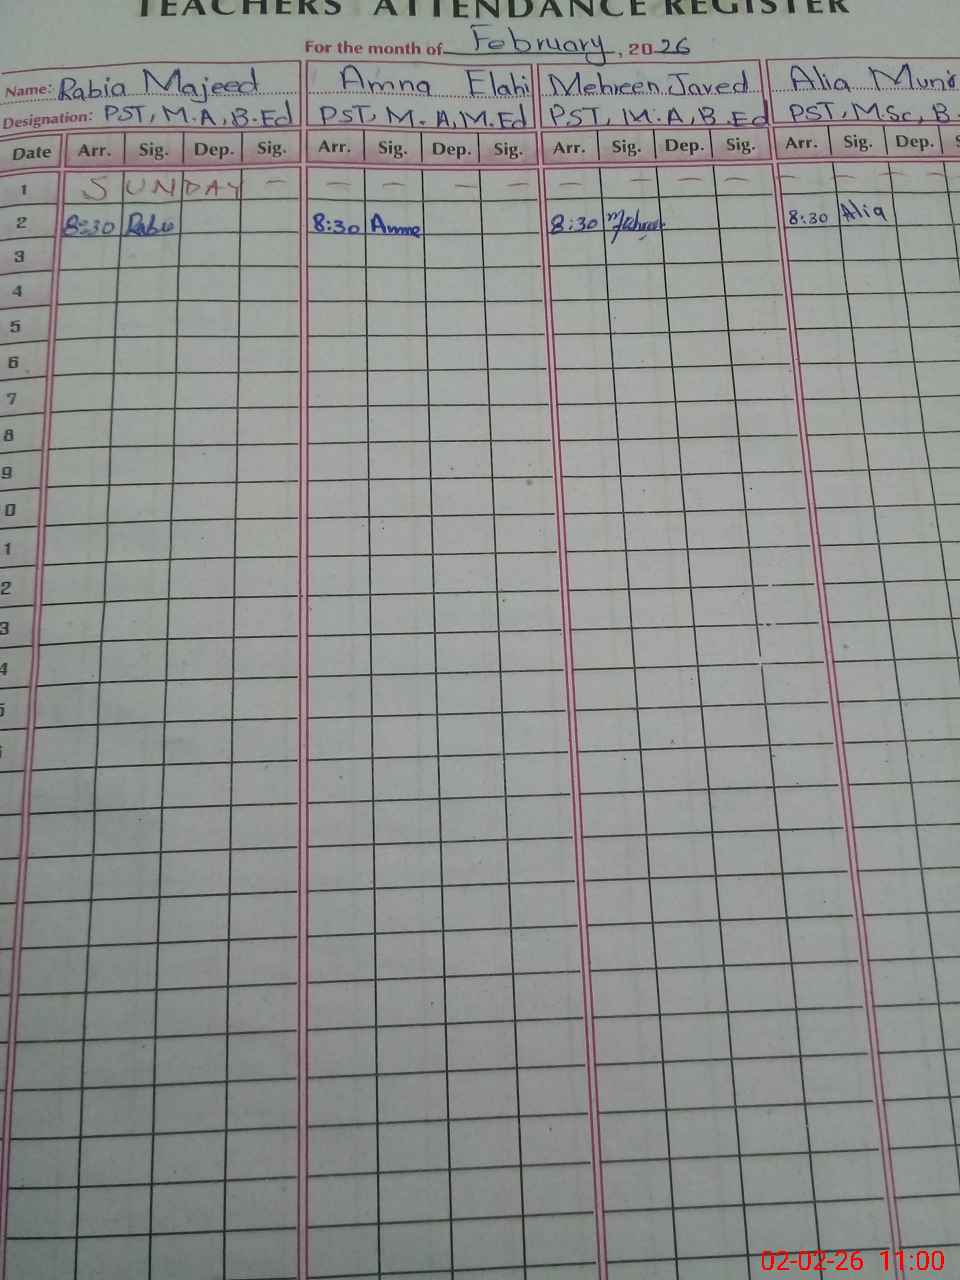 TEACHERS' ATTENDANCE REGISTER
For the month of February, 2026
Name: Rabia Majeed Amna Elahi Mehreen Javed Alia
Designation: PST, M.A, B.Ed PST, M.A, M.Ed PST, M.A, B.Ed PST, M.Sc, B.
Date Arr. Sig. Dep. Sig. Arr. Sig. Dep. Sig. Arr. Sig. Dep. Sig. Arr. Sig. Dep. S
1 SUNDAY — — — — — — — — — — — — —
2 8:30 Rabia 8:30 Amna 8:30 Mehreen 8:30 Alia
3
4
5
6
7
8
9
0
1
2
3
4
5
02-02-26 11:00